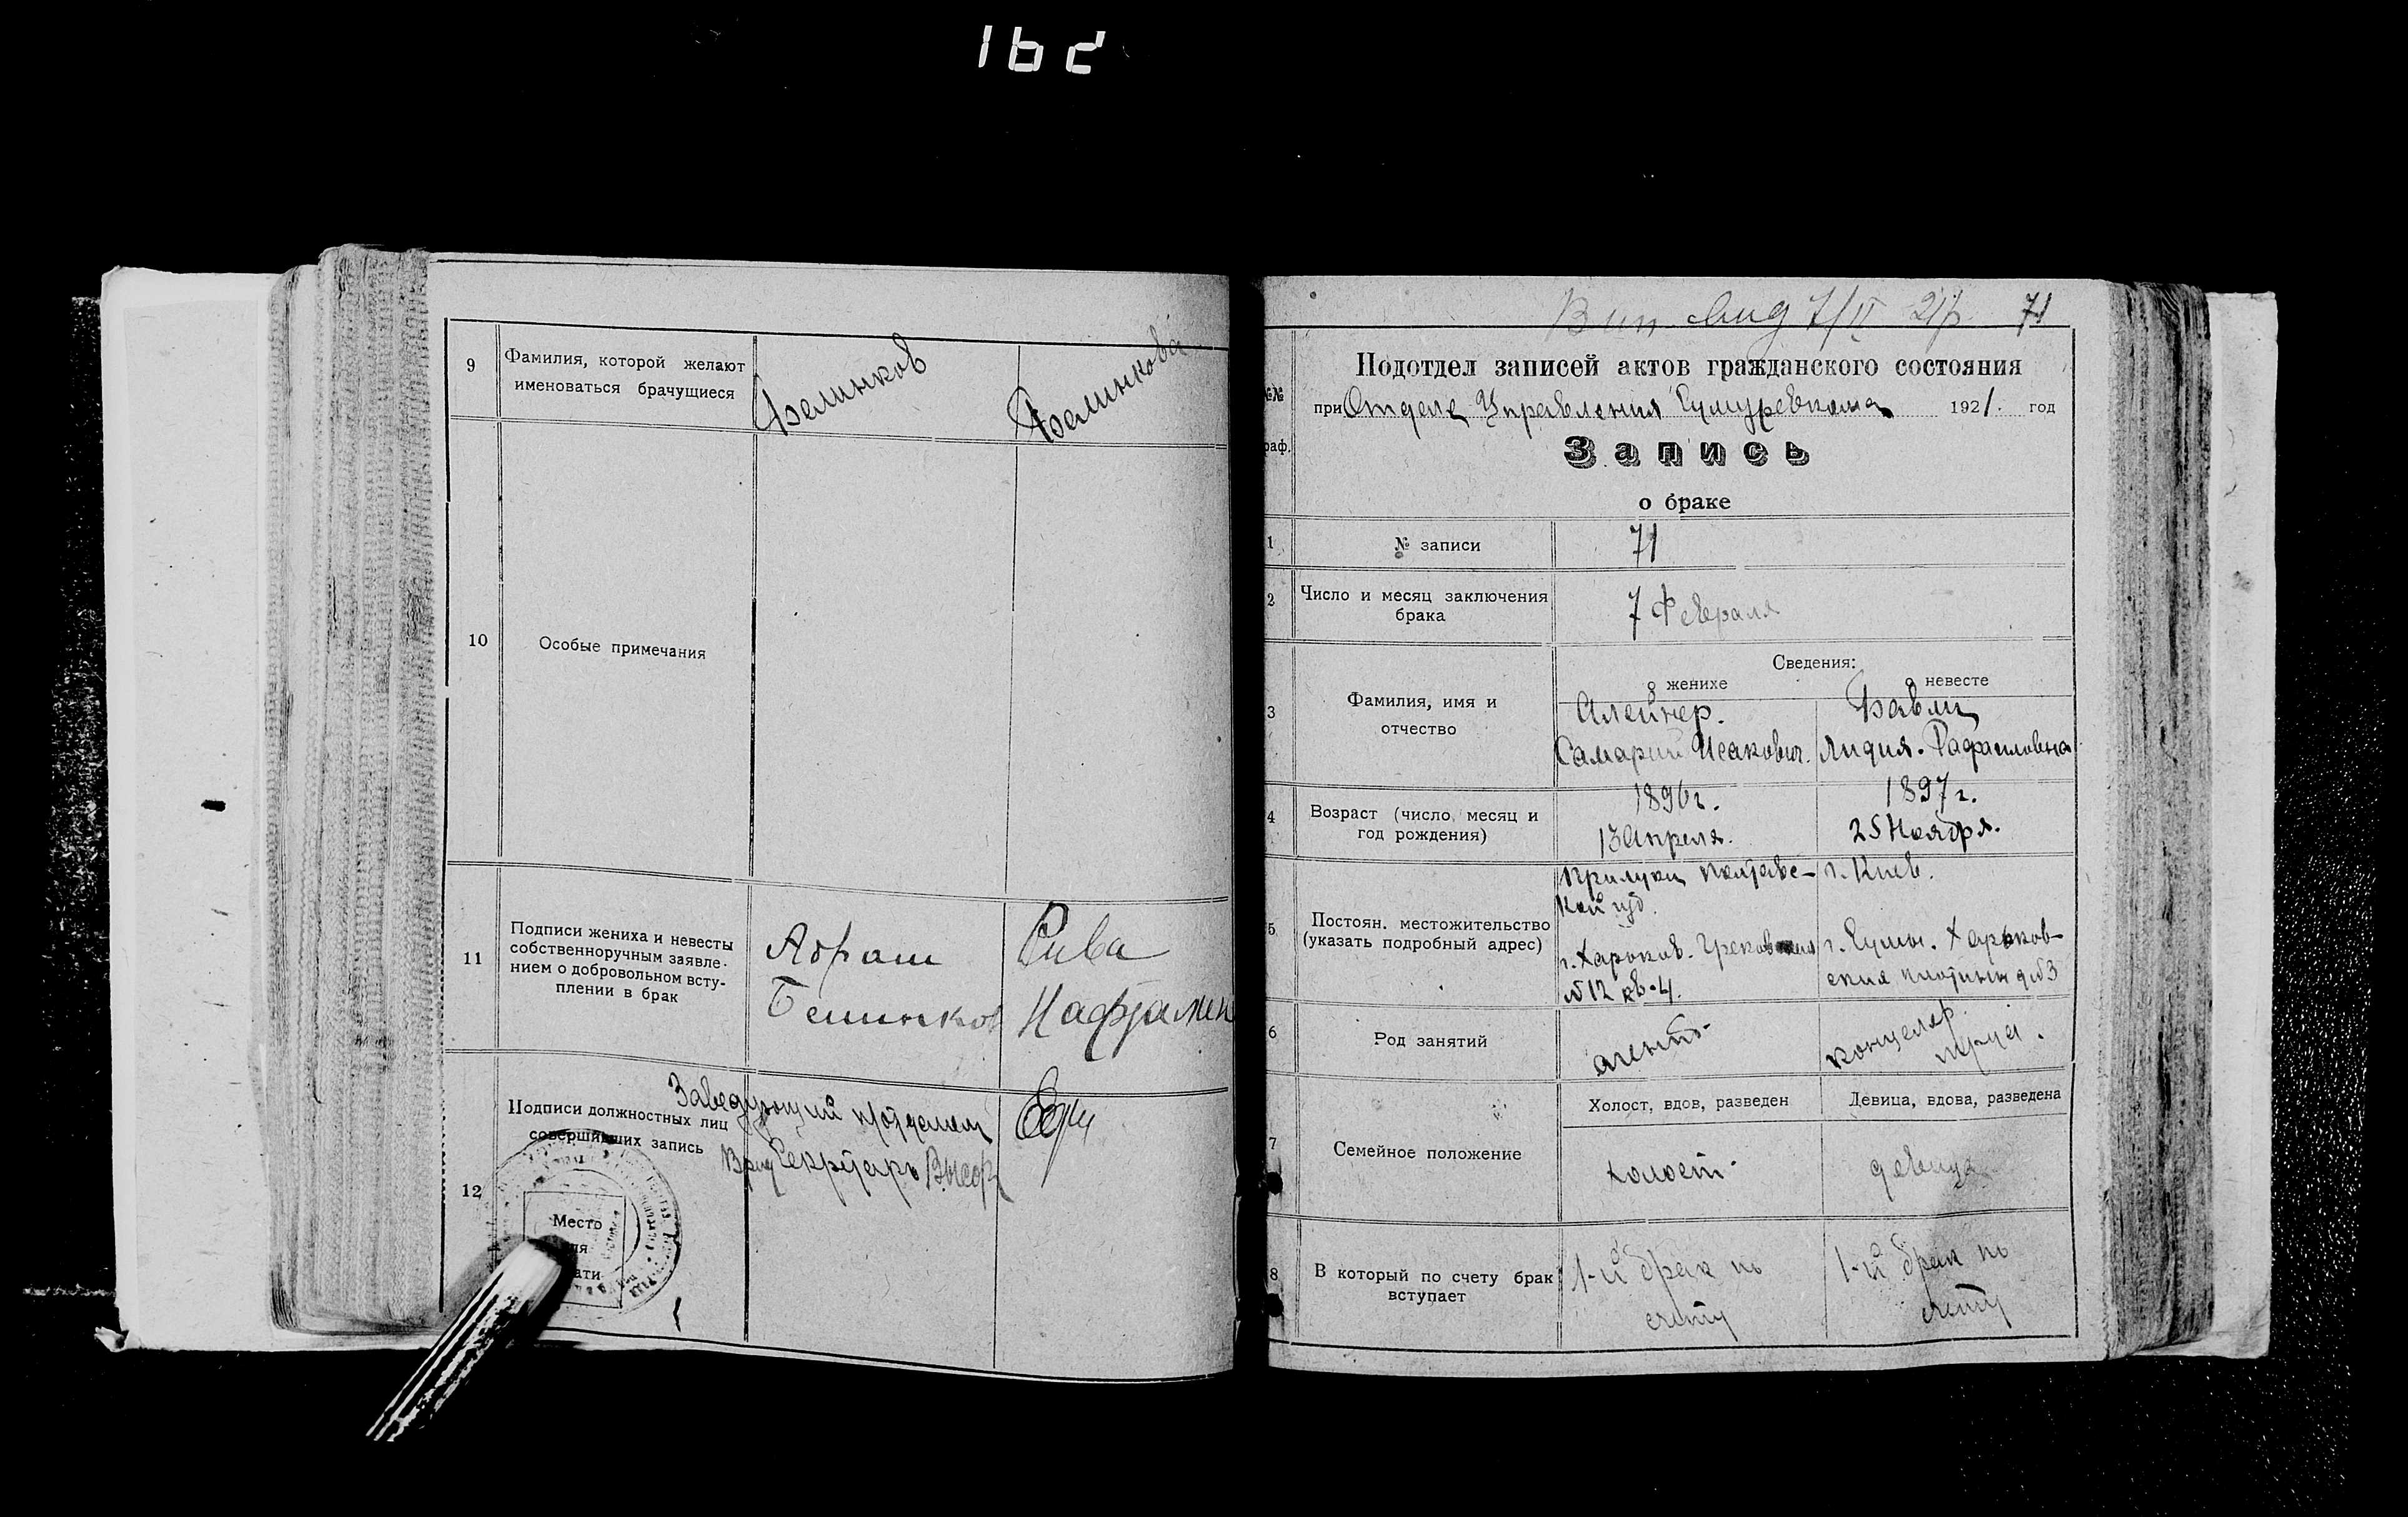 162
9
Фамилия, которой желают
именоваться брачущиеся
Белинков
Белинкова
10
Особые примечания
11
Подписи жениха и невесты
собственноручным заявле-
нием о добровольном всту-
плении в брак
Абрам
Белинков
Рива
12
Подписи должностных лиц
совершивших запись
Заведующий п/отделом
Секретарь
Место
71
Подотдел записей актов гражданского состояния
при Отделе Управления 1921. год
№№
раф.
Запись
о браке
1
№ записи
71
2
Число и месяц заключения
брака
7 Февраля
Сведения:
о женихе
о невесте
3
Фамилия, имя и
отчество
Алейнер.
Самарий Исакович.
Лидия. Рафаиловна
4
Возраст (число, месяц и
год рождения)
1896 г.
13 Апреля.
1897 г.
25 Ноября.
5
Постоян. местожительство
(указать подробный адрес)
Прилуки Полтавс-
кой губ.
г. Харьков.
№12 кв. 4.
г. Киев.
г. Харьков-
6
Род занятий
агент
7
Семейное положение
Холост, вдов, разведен
Девица, вдова, разведена
холост
девица
8
В который по счету брак
вступает
1-й брак по
счету
1-й брак по
счету